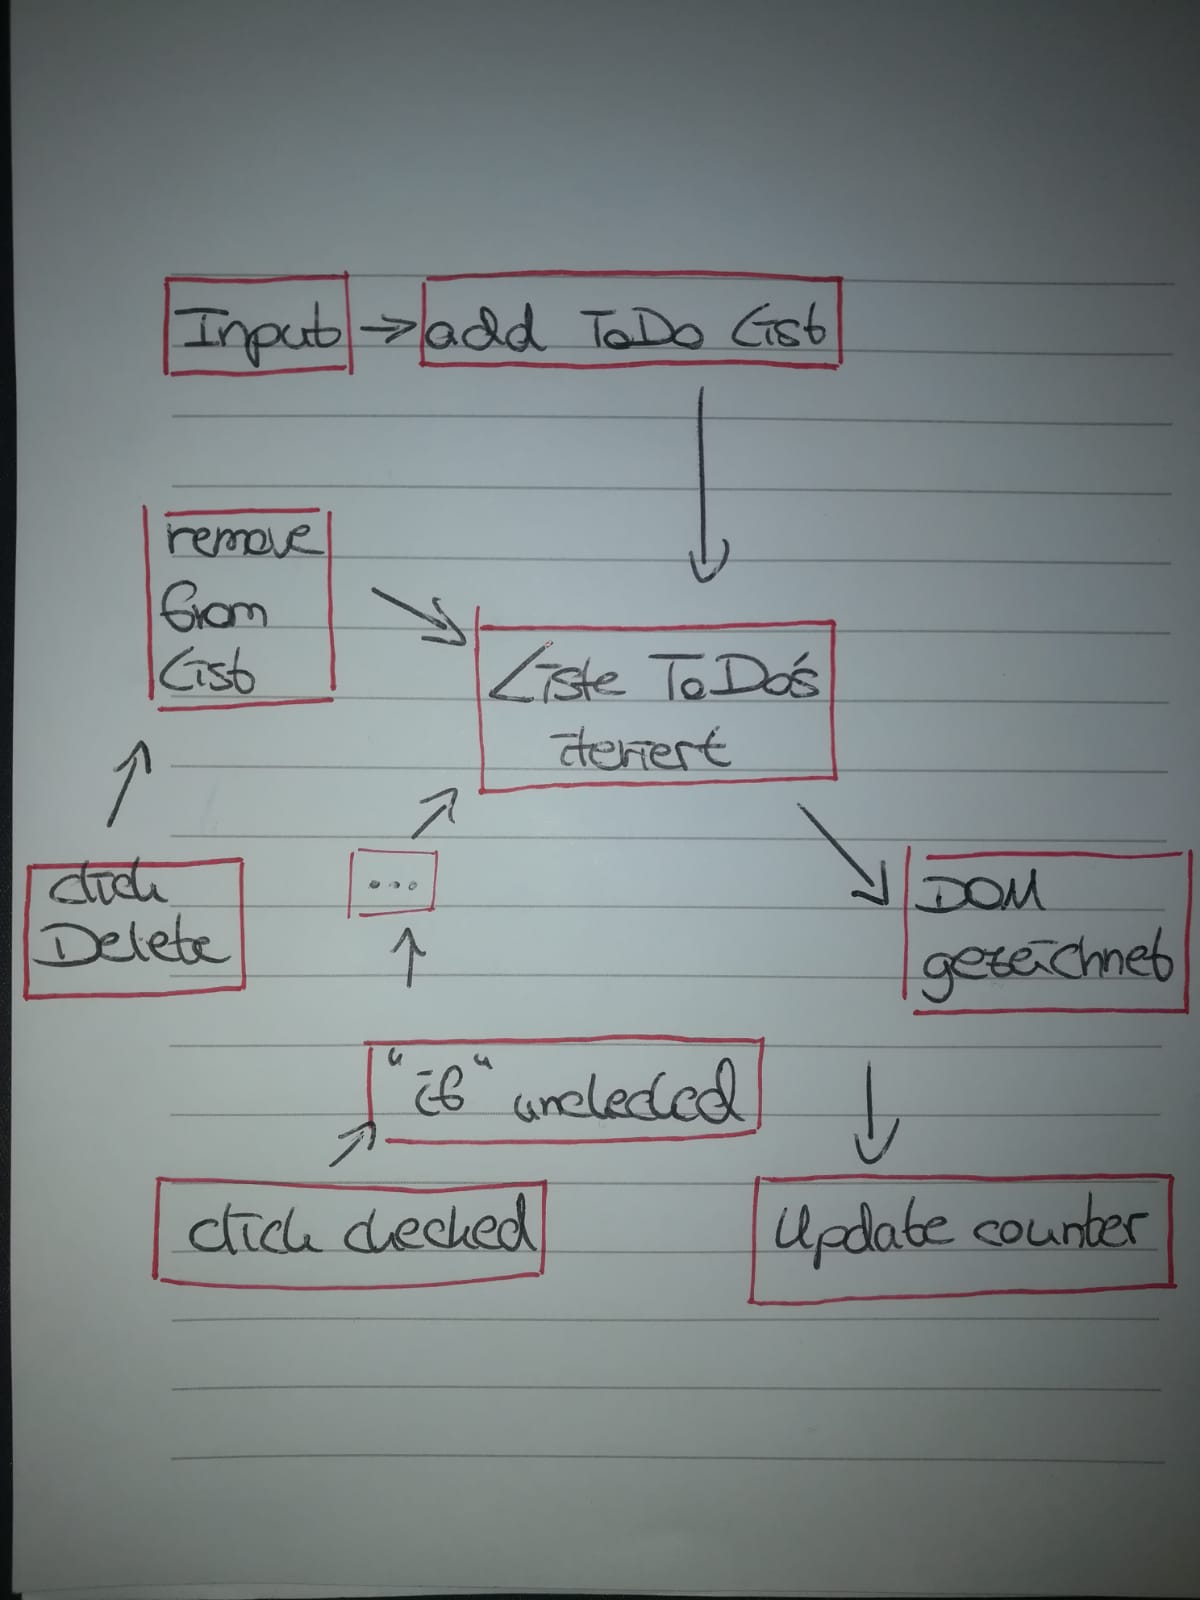 Input → add ToDo List
remove
from
List
Liste ToDo's
iteriert
click
Delete
...
DOM
gezeichnet
"if" unchecked
click checked
Update counter